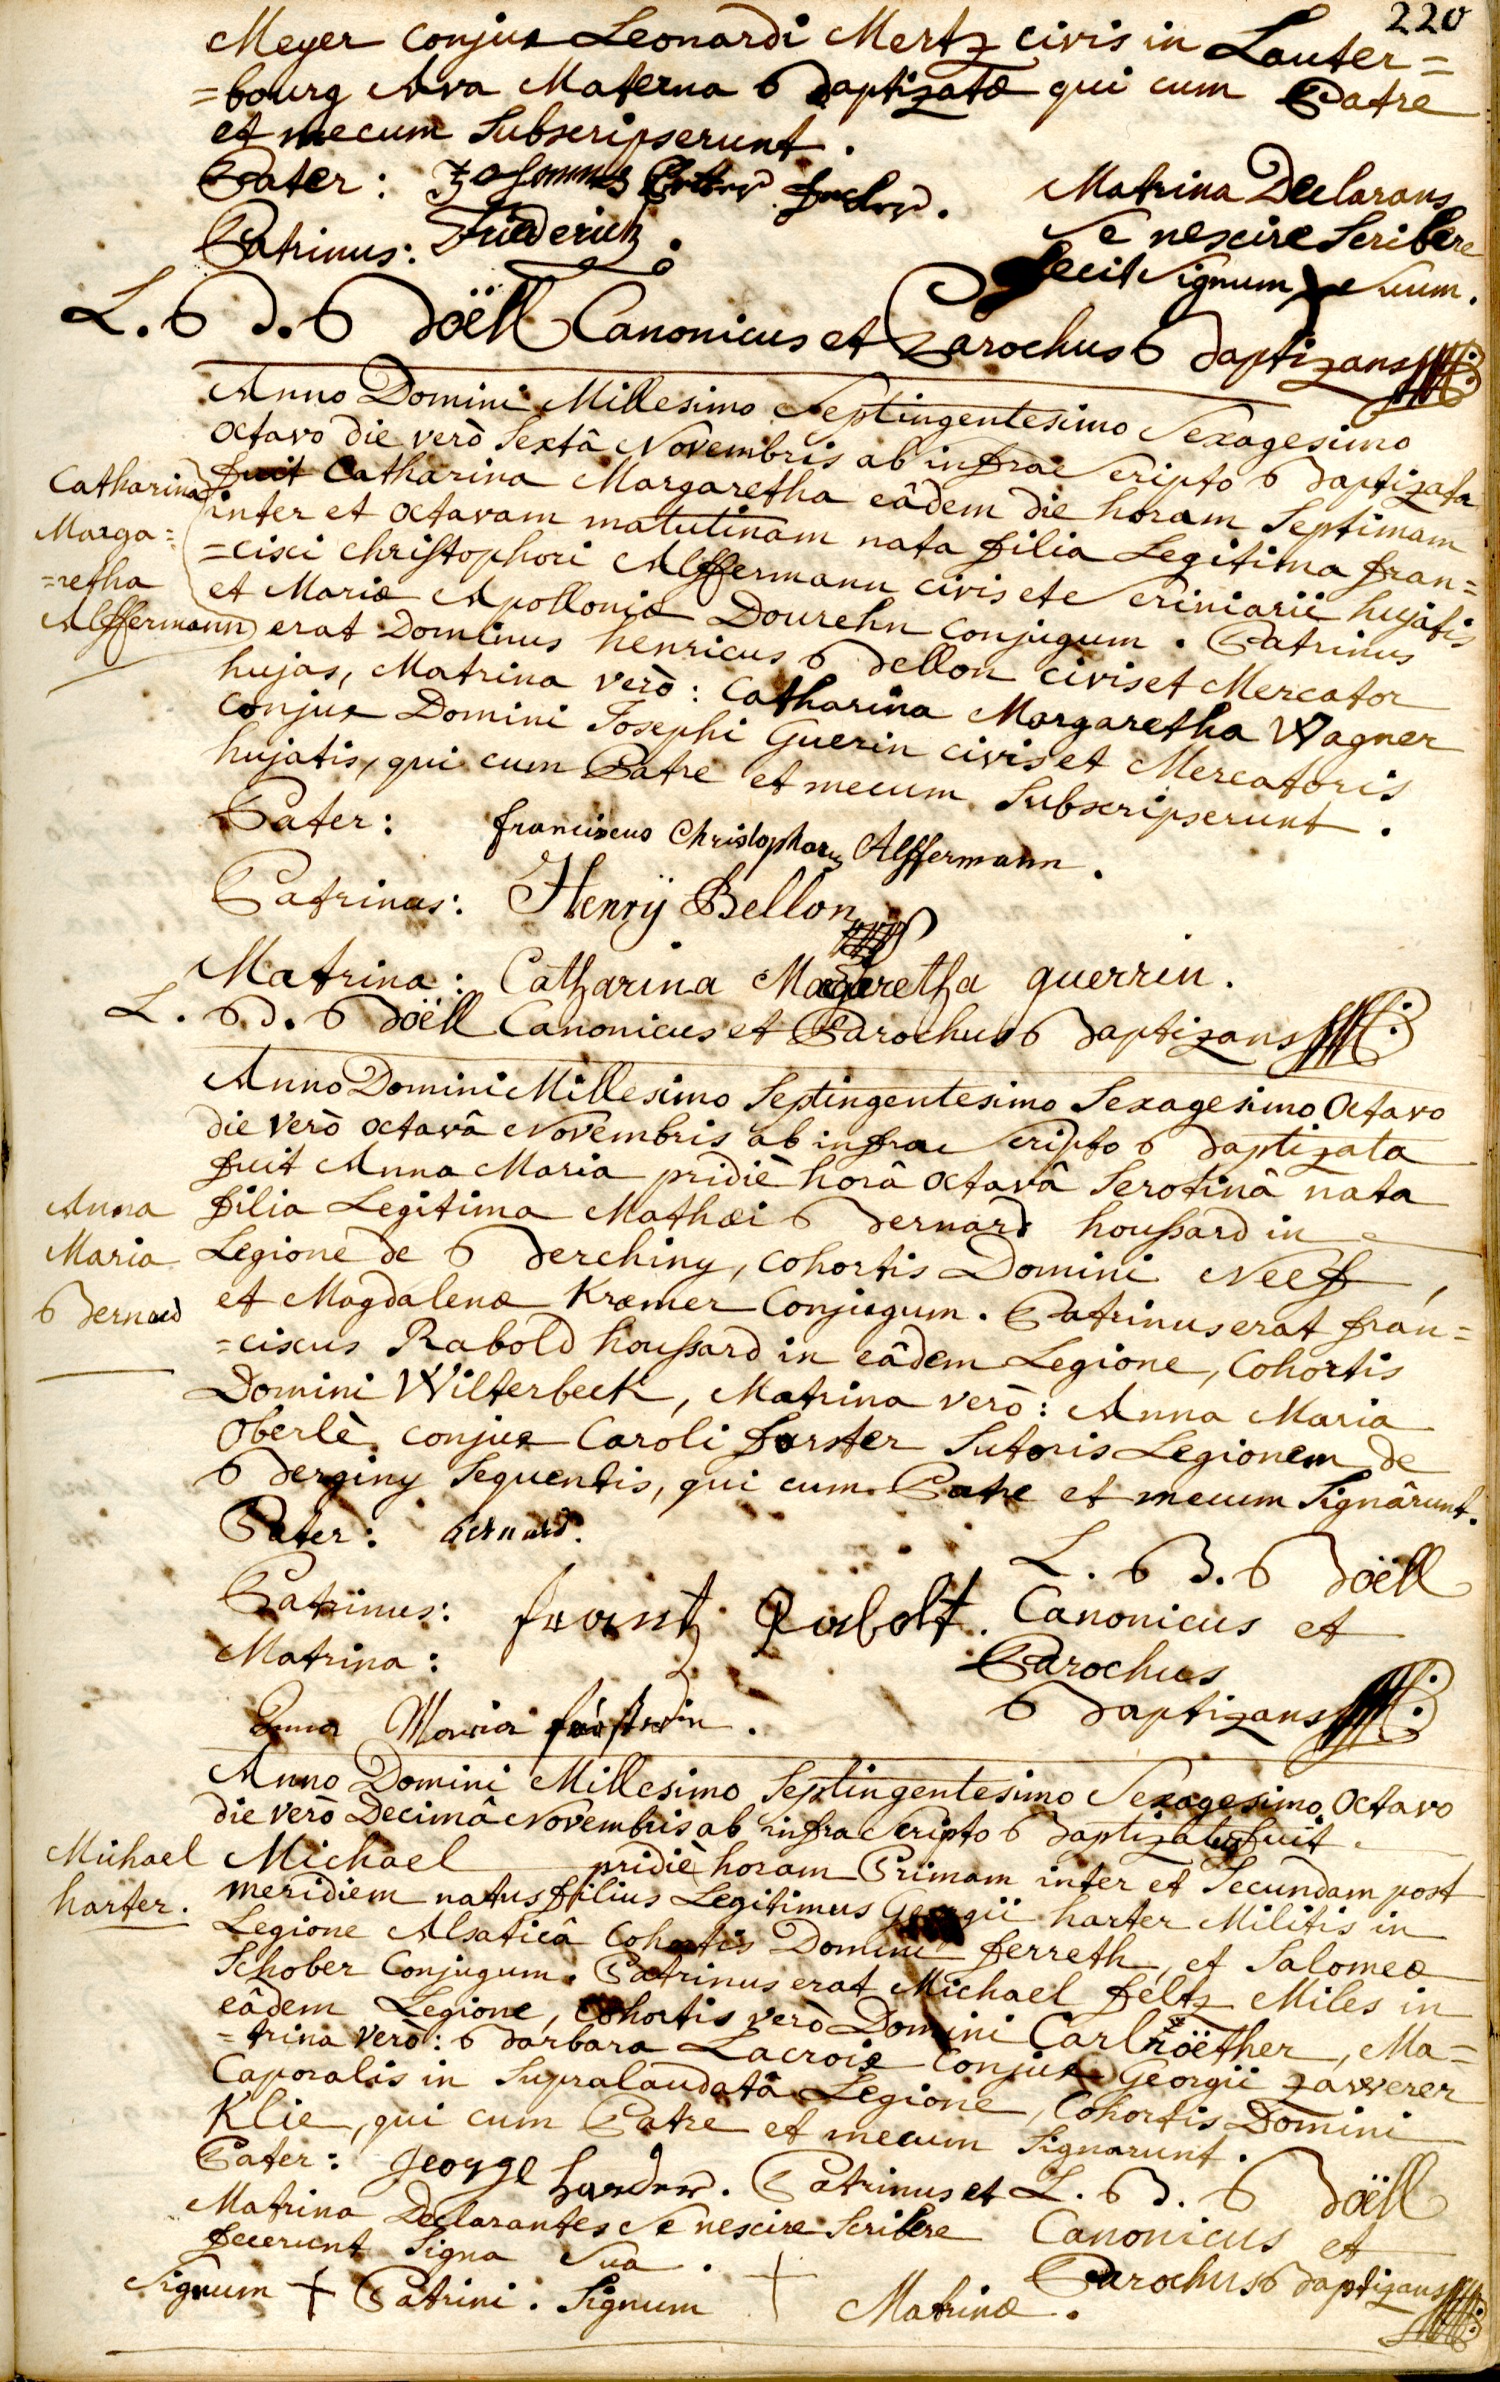 220
Meyer conjux Leonardi Mertz civis in Lauter=
=bourg Ava Materna Baptizatæ qui cum Patre
et mecum Subscripserunt.
Pater: Johannes
Patrinus: Friederich
Matrina Declarans
Se nescire Scribere
fecit Signum x Suum.
L. B. Böell Canonicus et Parochus Baptizans
Anno Domini Millesimo Septingentesimo Sexagesimo
octavo die verò Sextâ Novembris ab infra Scripto Baptizata
fuit Catharina Margaretha eâdem die horam Septimam
inter et octavam matutinam nata filia Legitima fran=
=cisci christophori Alffermann civis et Scriniarii hujatis
et Mariæ Apolloniæ Dourehn conjugum. Patrinus
erat Dominus henricus Bellon civis et Mercator
hujas, Matrina verò: Catharina Margaretha Wagner
conjux Domini Josephi Guerin civis et Mercatoris
hujatis, qui cum Patre et mecum Subscripserunt.
Catharina
Marga=
=retha
Alffermann
Pater: franciscus Christophorus Alffermann.
Patrinus: Henrÿ Bellon
Matrina: Catharina Magaretha guerrin.
L. B. Böell Canonicus et Parochus Baptizans
Anno Domini Millesimo Septingentesimo Sexagesimo Octavo
die verò octavâ Novembris ab infra Scripto Baptizata
fuit Anna Maria pridiè horâ octavâ Serotinâ nata
filia Legitima Mathæi Bernard houssard in
Legione de Berchiny, cohortis Domini Neef,
et Magdalenæ Kræmer Conjugum. Patrinus erat fran=
=ciscus Rabold houssard in eâdem Legione, Cohortis
Domini Wilterbeck, Matrina verò: Anna Maria
Oberlè conjux Caroli forster Sutoris Legionem de
Berginy Sequentis, qui cum Patre et mecum Signârunt.
Anna
Maria
Bernard
Pater: bernard.
Patrinus: frantz Rabolt.
Matrina:
Anna Maria forsterin.
L. B. Böell
Canonicus et
Parochus
Baptizans
Anno Domini Millesimo Septingentesimo Sexagesimo Octavo
die verò Decimâ Novembris ab infra Scripto Baptizatus fuit
Michael pridiè horam Primam inter et Secundam post
meridiem natus filius Legitimus Georgii harter Militis in
Legione Alsaticâ Cohortis Domini ferreth, et Salomeæ
Schober Conjugum. Patrinus erat Michael feltz Miles in
eâdem Legione, cohortis verò Domini Carl röether, Ma=
=trina verò: Barbara Lacroix Conjux Georgii zawerer
Caporalis in Supralaudatâ Legione, Cohortis Domini
Klie, qui cum Patre et mecum Signarunt.
Michael
harter.
Pater: george harder. Patrinus et
Matrina Declarantes Se nescire Scribere
fecerunt Signa Sua.
Signum + Patrini. Signum + Matrinæ.
L. B. Böell
Canonicus et
Parochus Baptizans